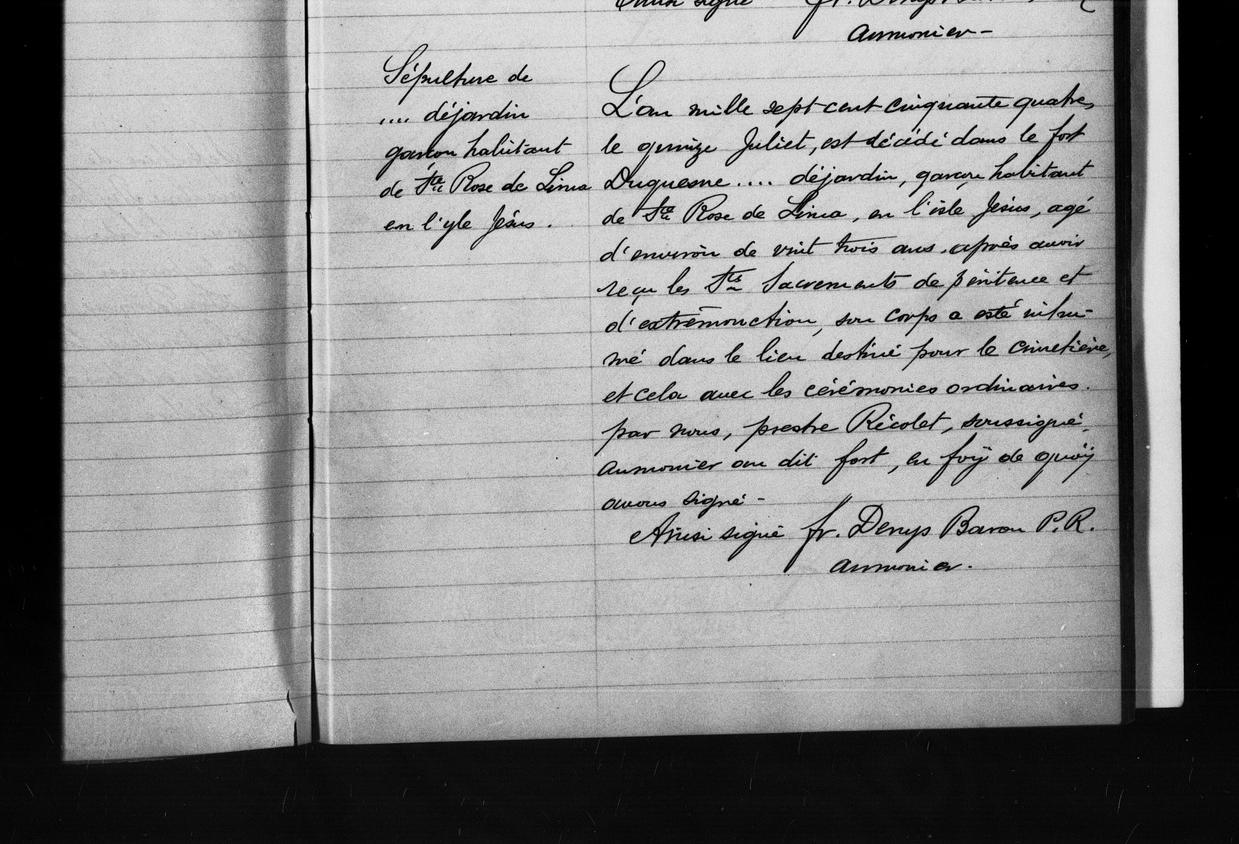 Ainsi signé fr. Denys Baron
aumonier -
Sépulture de
.... déjardin
garcon habitant
de Ste Rose de Lima
en l'yle Jésus .
L'an mille sept cent cinquante quatre,
le quinze Juliet, est décédé dans le fort
Duquesne .... déjardin, garçon habitant
de Ste Rose de Lima, en l'isle Jésus, agé
d'environ de vint trois ans, après avoir
reçu les Sts Sacrements de pénitence et
d'extrémonction, son corps a esté inhu-
mé dans le lieu destiné pour le cimetière,
et cela avec les cérémonies ordinaires.
par nous, prestre Récolet, soussigné,
aumonier au dit fort, en foÿ de quoÿ
avons signé -
Ainsi signé fr. Denys Baron P.R.
aumonier.